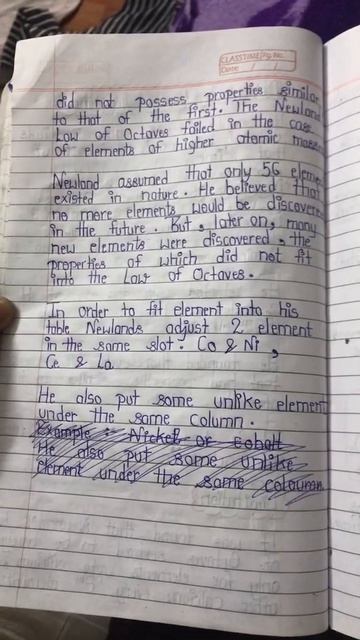 CLASSTIME Pg. No.
Date / /
did not possess properties similar
to that of the first. The Newland
Law of Octaves failed in the case
of elements of higher atomic masses
Newland assumed that only 56 eleme
existed in nature. He believed that
no more elements would be discovere
in the future. But, later on, many
new elements were discovered, the
properties of which did not fit
into the Law of Octaves.
In order to fit element into his
table Newlands adjust 2 element
in the same slot: Co & Ni,
Ce & La
He also put some unlike element
under the same column.
Example: Nickel or cobalt
He also put some unlike
element under the same coloumn